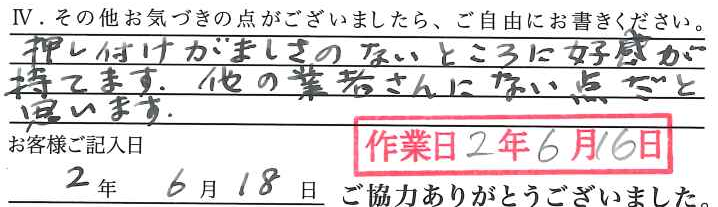 Ⅳ．その他お気づきの点がございましたら、ご自由にお書きください。
押し付けがましさのないところに好感が
持てます。他の業者さんにない点だと
思います。
お客様ご記入日
作業日2年6月16日
2年 6月18日 ご協力ありがとうございました。